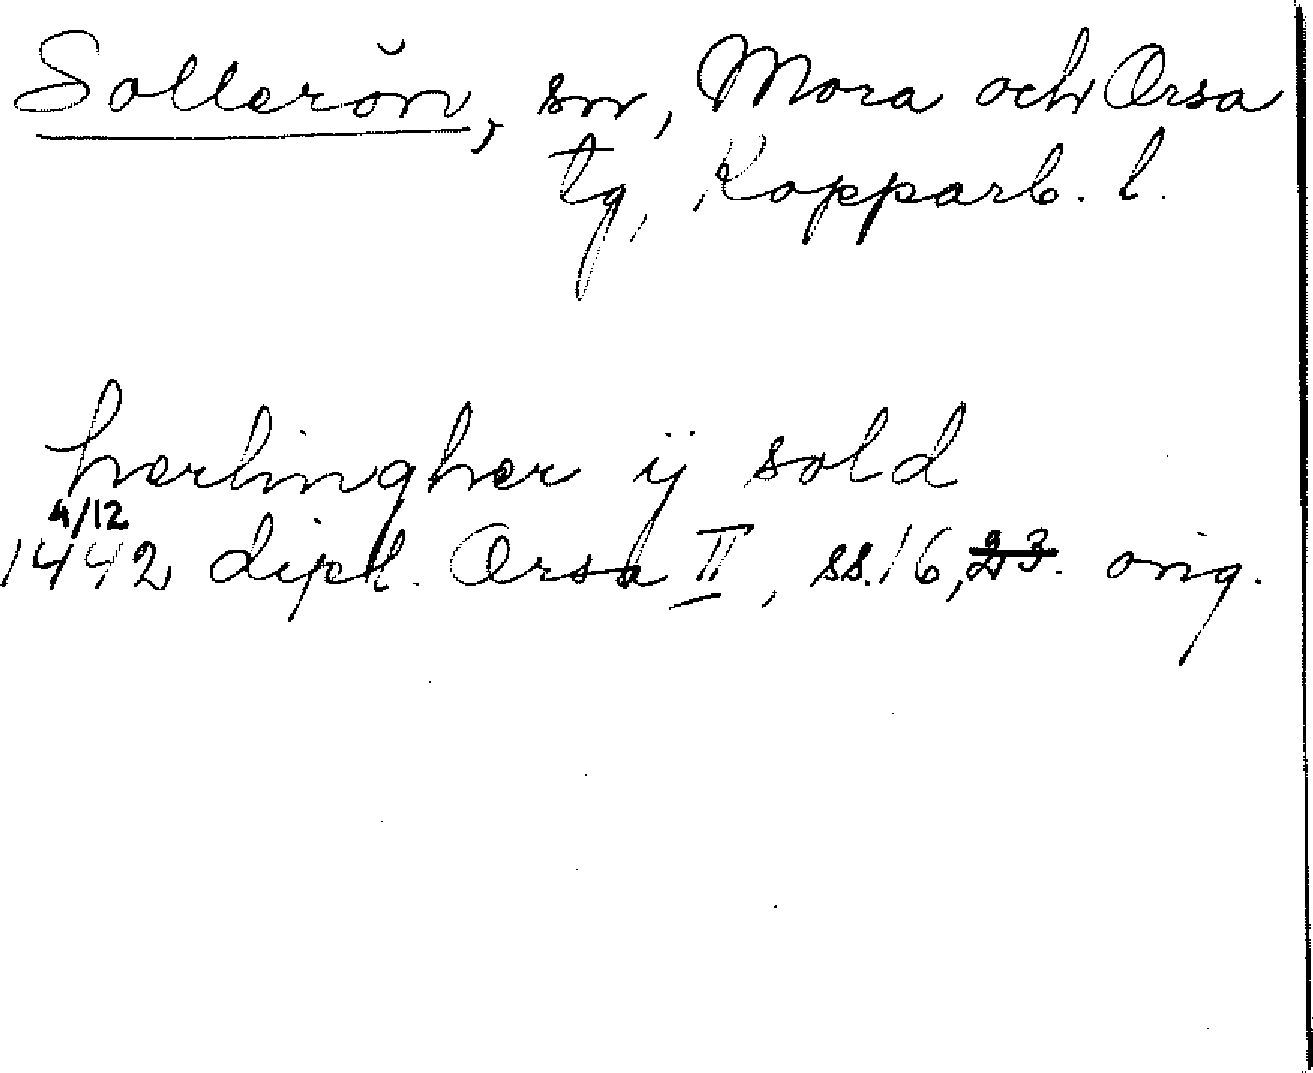 Sollerön, sn, Mora och Orsa
tg, Kopparb. l.
hærlingher ij sold
4/12
1442 dipl. Orsa II, ss. 16, 23. orig.